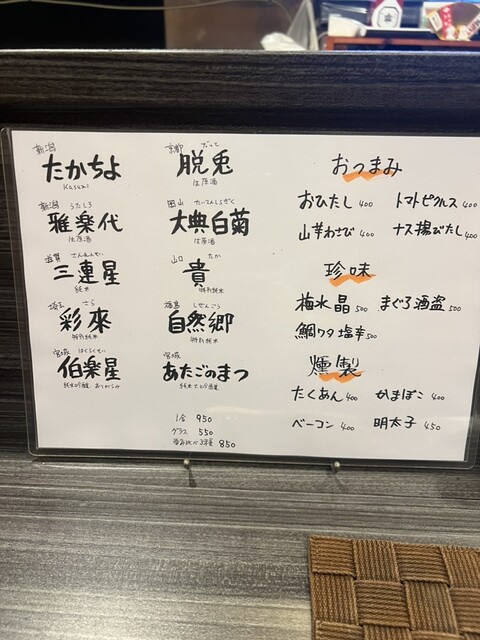 新潟
たかちよ
Kasumi
新潟 うたしろ
雅楽代
生原酒
滋賀 さんれんせい
三連星
純米
埼玉 さら
彩來
特別純米
宮城 はくらくせい
伯楽星
純米吟醸
京都 だっと
脱兎
生原酒
岡山 たいてんしらぎく
大典白菊
生原酒
山口 たか
貴
特別純米
福島 しぜんごう
自然郷
特別純米
宮城
あたごのまつ
純米大吟醸
1合 950
グラス 550
飲み比べ3種 850
おつまみ
おひたし 400 トマトピクルス 400
山芋わさび 400 ナス揚びたし 400
珍味
梅水晶 500 まぐろ酒盗 500
鯛ワタ塩辛 500
燻製
たくあん 400 かまぼこ 400
ベーコン 400 明太子 450